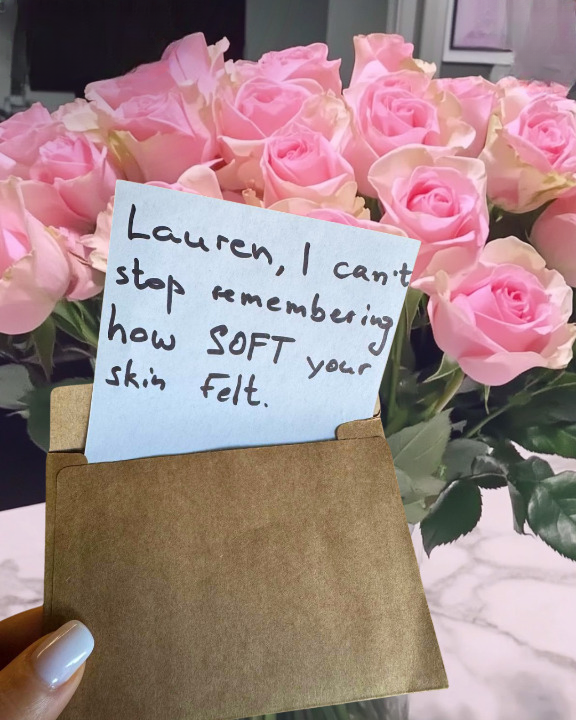 Lauren, I can't
stop remembering
how SOFT your
skin felt.